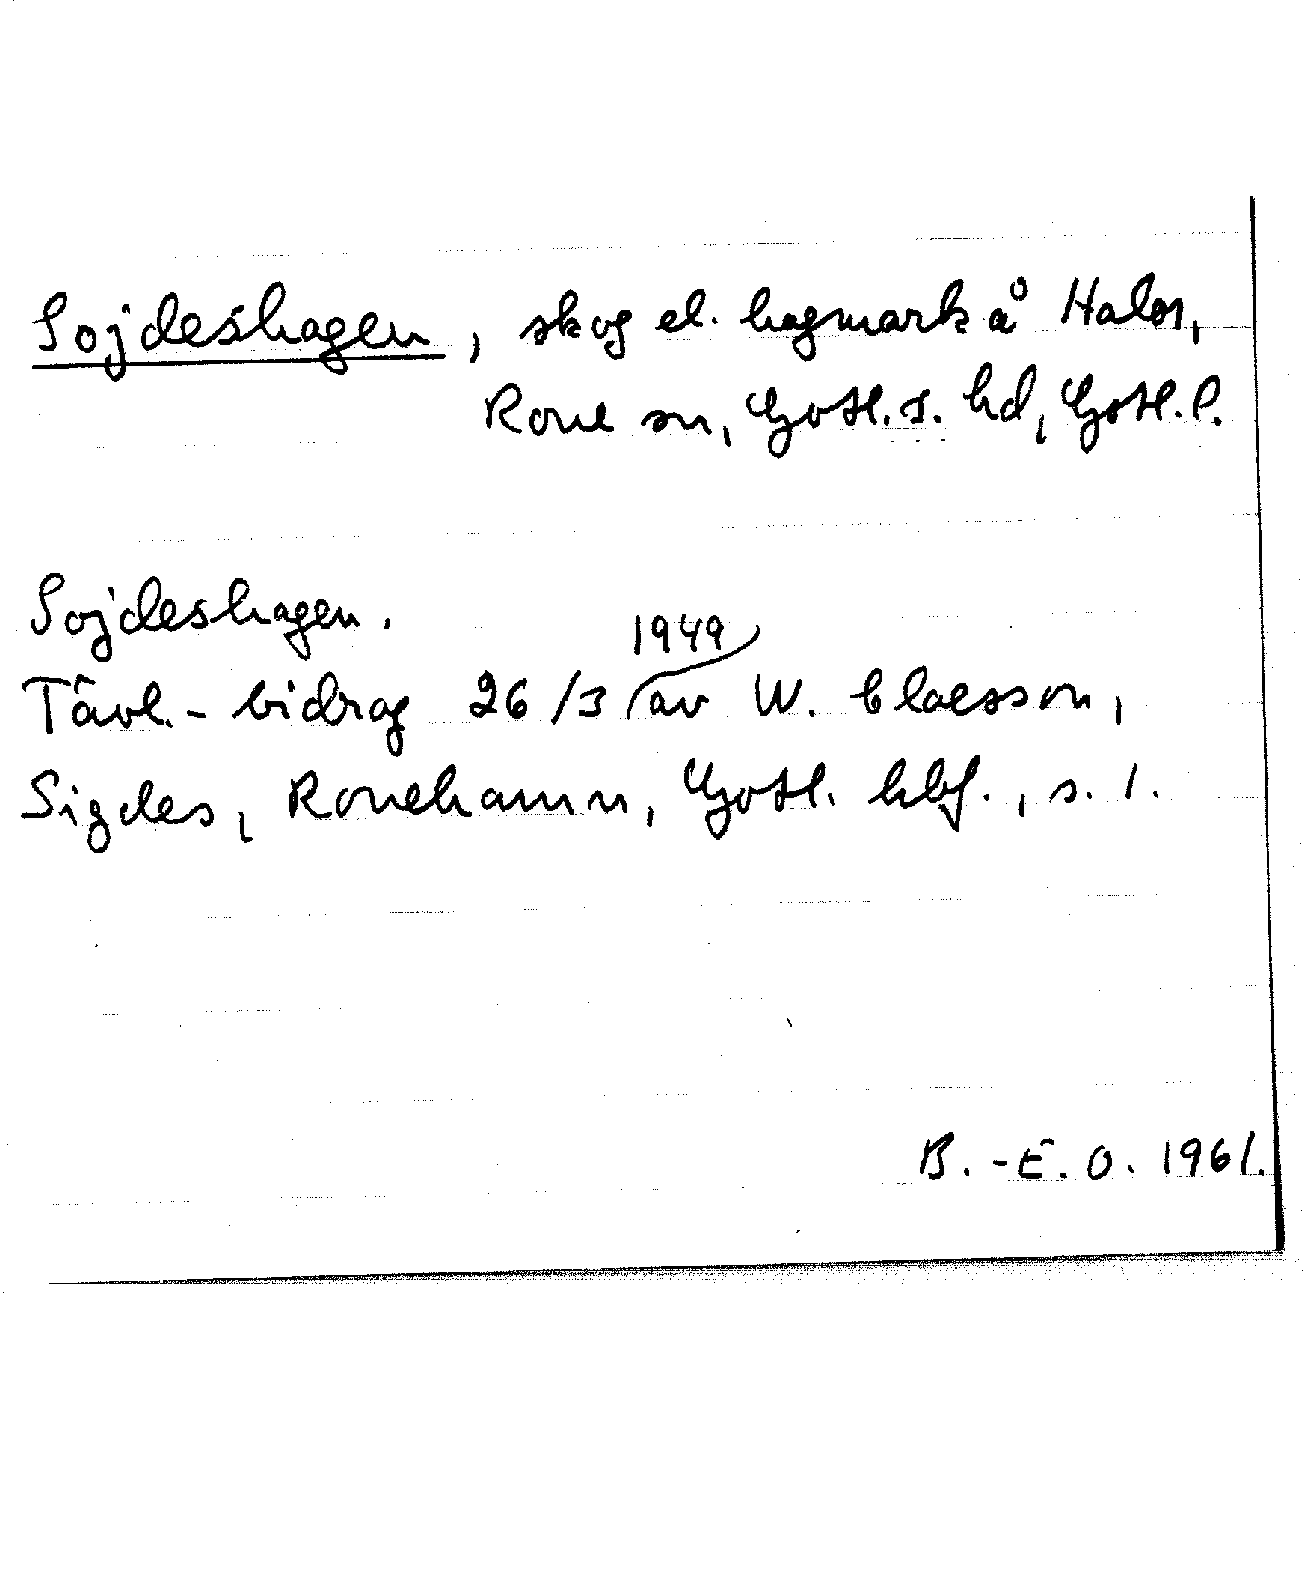 Sojdeshagen, skog el. hagmark å Halor,
Rone sn, Gotl. s. hd, Gotl. l.
Sojdeshagen.
Tävl.-bidrag 26/3 1949 av W. Claesson,
Sigdes, Ronehamn, Gotl. hbf., s. 1.
B.-E. O. 1961.